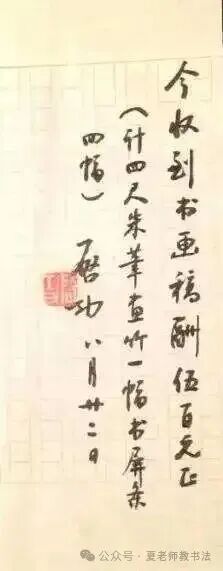 今收到书画稿酬伍百元正
(计四尺朱笔画竹一幅书屏条
四幅) 启功 八月廿二日
公众号·夏老师教书法